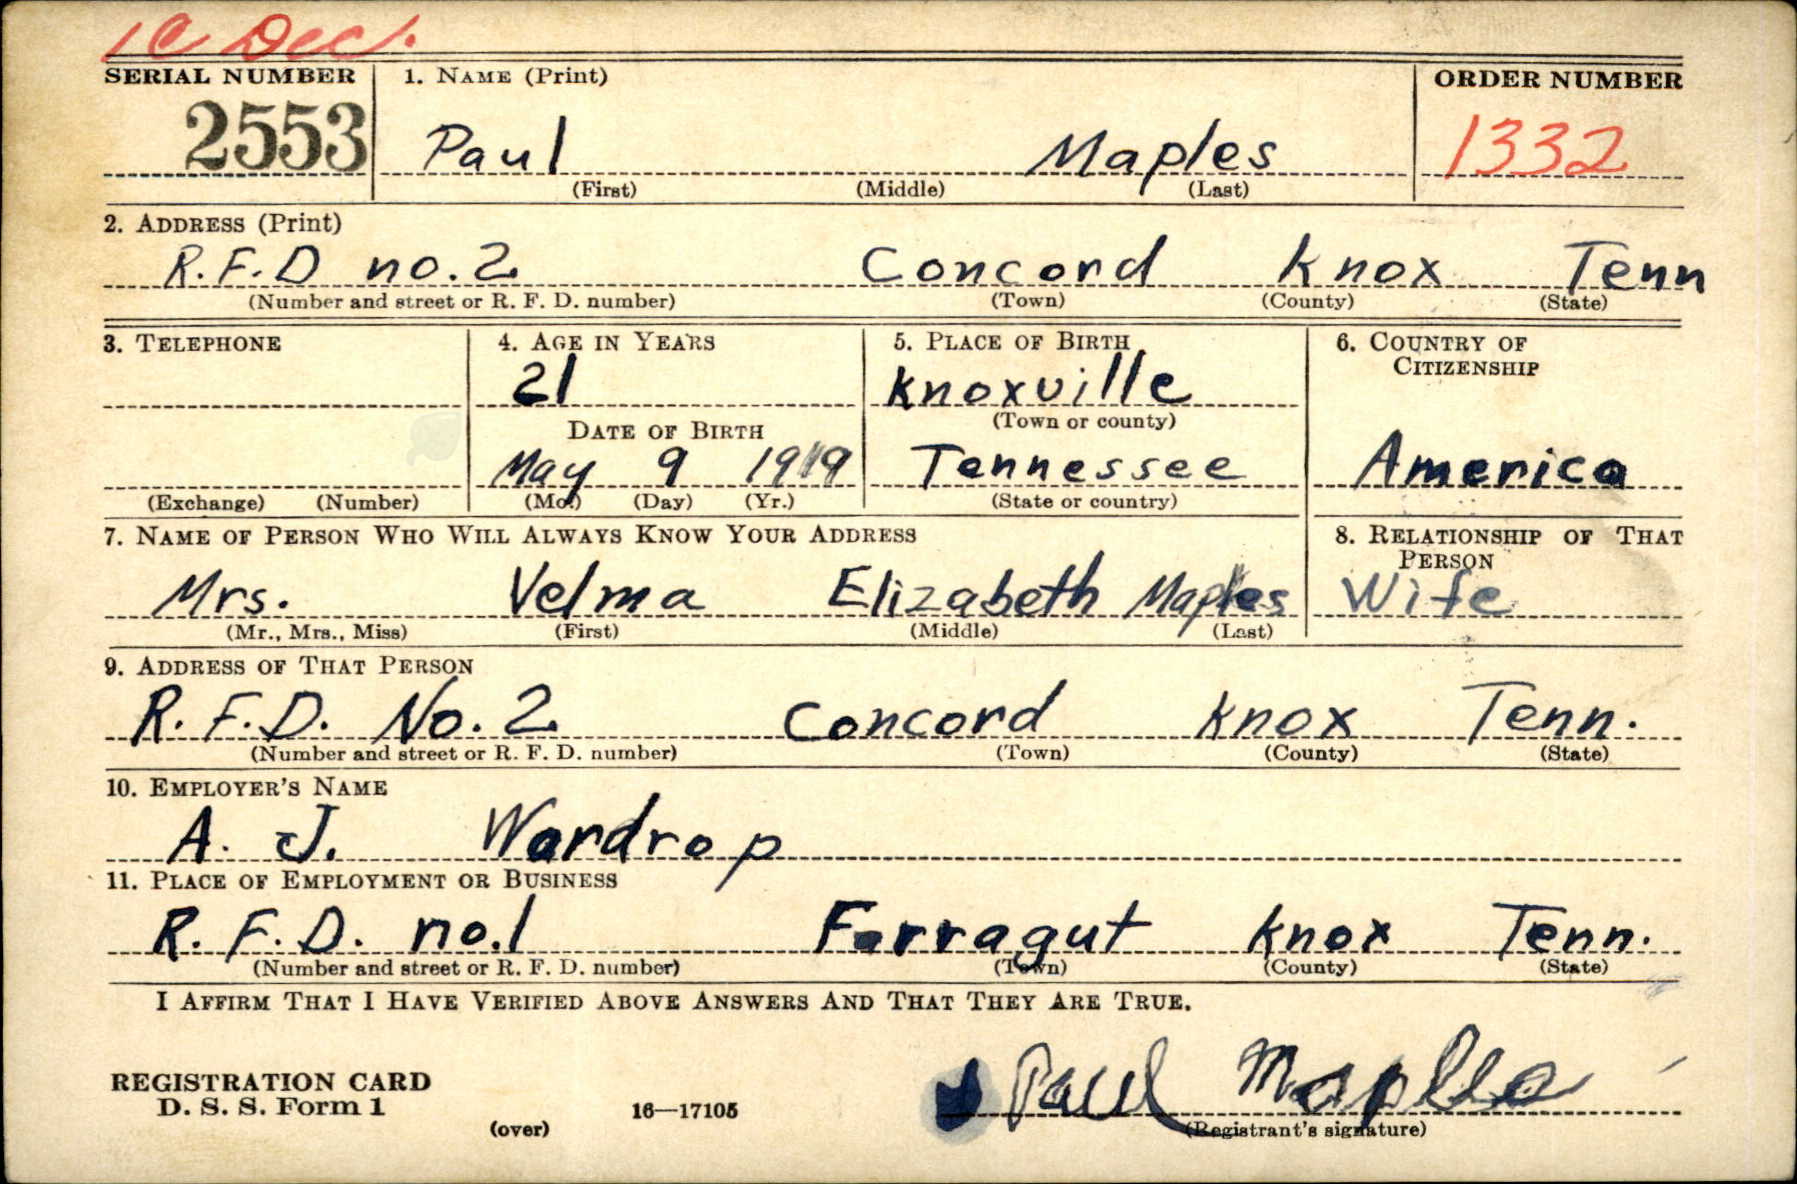 1C Dec.
SERIAL NUMBER 1. NAME (Print) ORDER NUMBER
2553 Paul Maples 1332
(First) (Middle) (Last)
2. ADDRESS (Print)
R.F.D no.2 Concord Knox Tenn
(Number and street or R. F. D. number) (Town) (County) (State)
3. TELEPHONE 4. AGE IN YEARS 5. PLACE OF BIRTH 6. COUNTRY OF
CITIZENSHIP
21 Knoxville
DATE OF BIRTH (Town or county)
May 9 1919 Tennessee America
(Exchange) (Number) (Mo.) (Day) (Yr.) (State or country)
7. NAME OF PERSON WHO WILL ALWAYS KNOW YOUR ADDRESS 8. RELATIONSHIP OF THAT
PERSON
Mrs. Velma Elizabeth Maples Wife
(Mr., Mrs., Miss) (First) (Middle) (Last)
9. ADDRESS OF THAT PERSON
R.F.D. No. 2 Concord Knox Tenn.
(Number and street or R. F. D. number) (Town) (County) (State)
10. EMPLOYER'S NAME
A. J. Wardrop
11. PLACE OF EMPLOYMENT OR BUSINESS
R. F. D. no.1 Farragut Knox Tenn.
(Number and street or R. F. D. number) (Town) (County) (State)
I AFFIRM THAT I HAVE VERIFIED ABOVE ANSWERS AND THAT THEY ARE TRUE.
Paul Maples
REGISTRATION CARD
D. S. S. Form 1 16—17105
(over) (Registrant's signature)